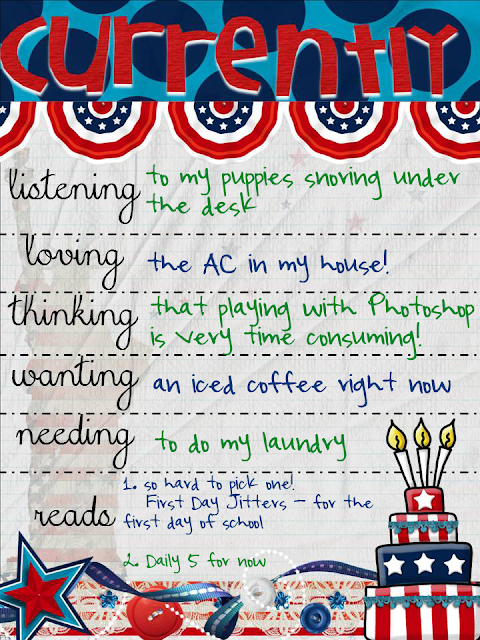 currently
listening to my puppies snoring under
the desk
loving the AC in my house!
thinking that playing with Photoshop
is very time consuming!
wanting an iced coffee right now
needing to do my laundry
reads 1. so hard to pick one!
First Day Jitters – for the
first day of school
2. Daily 5 for now